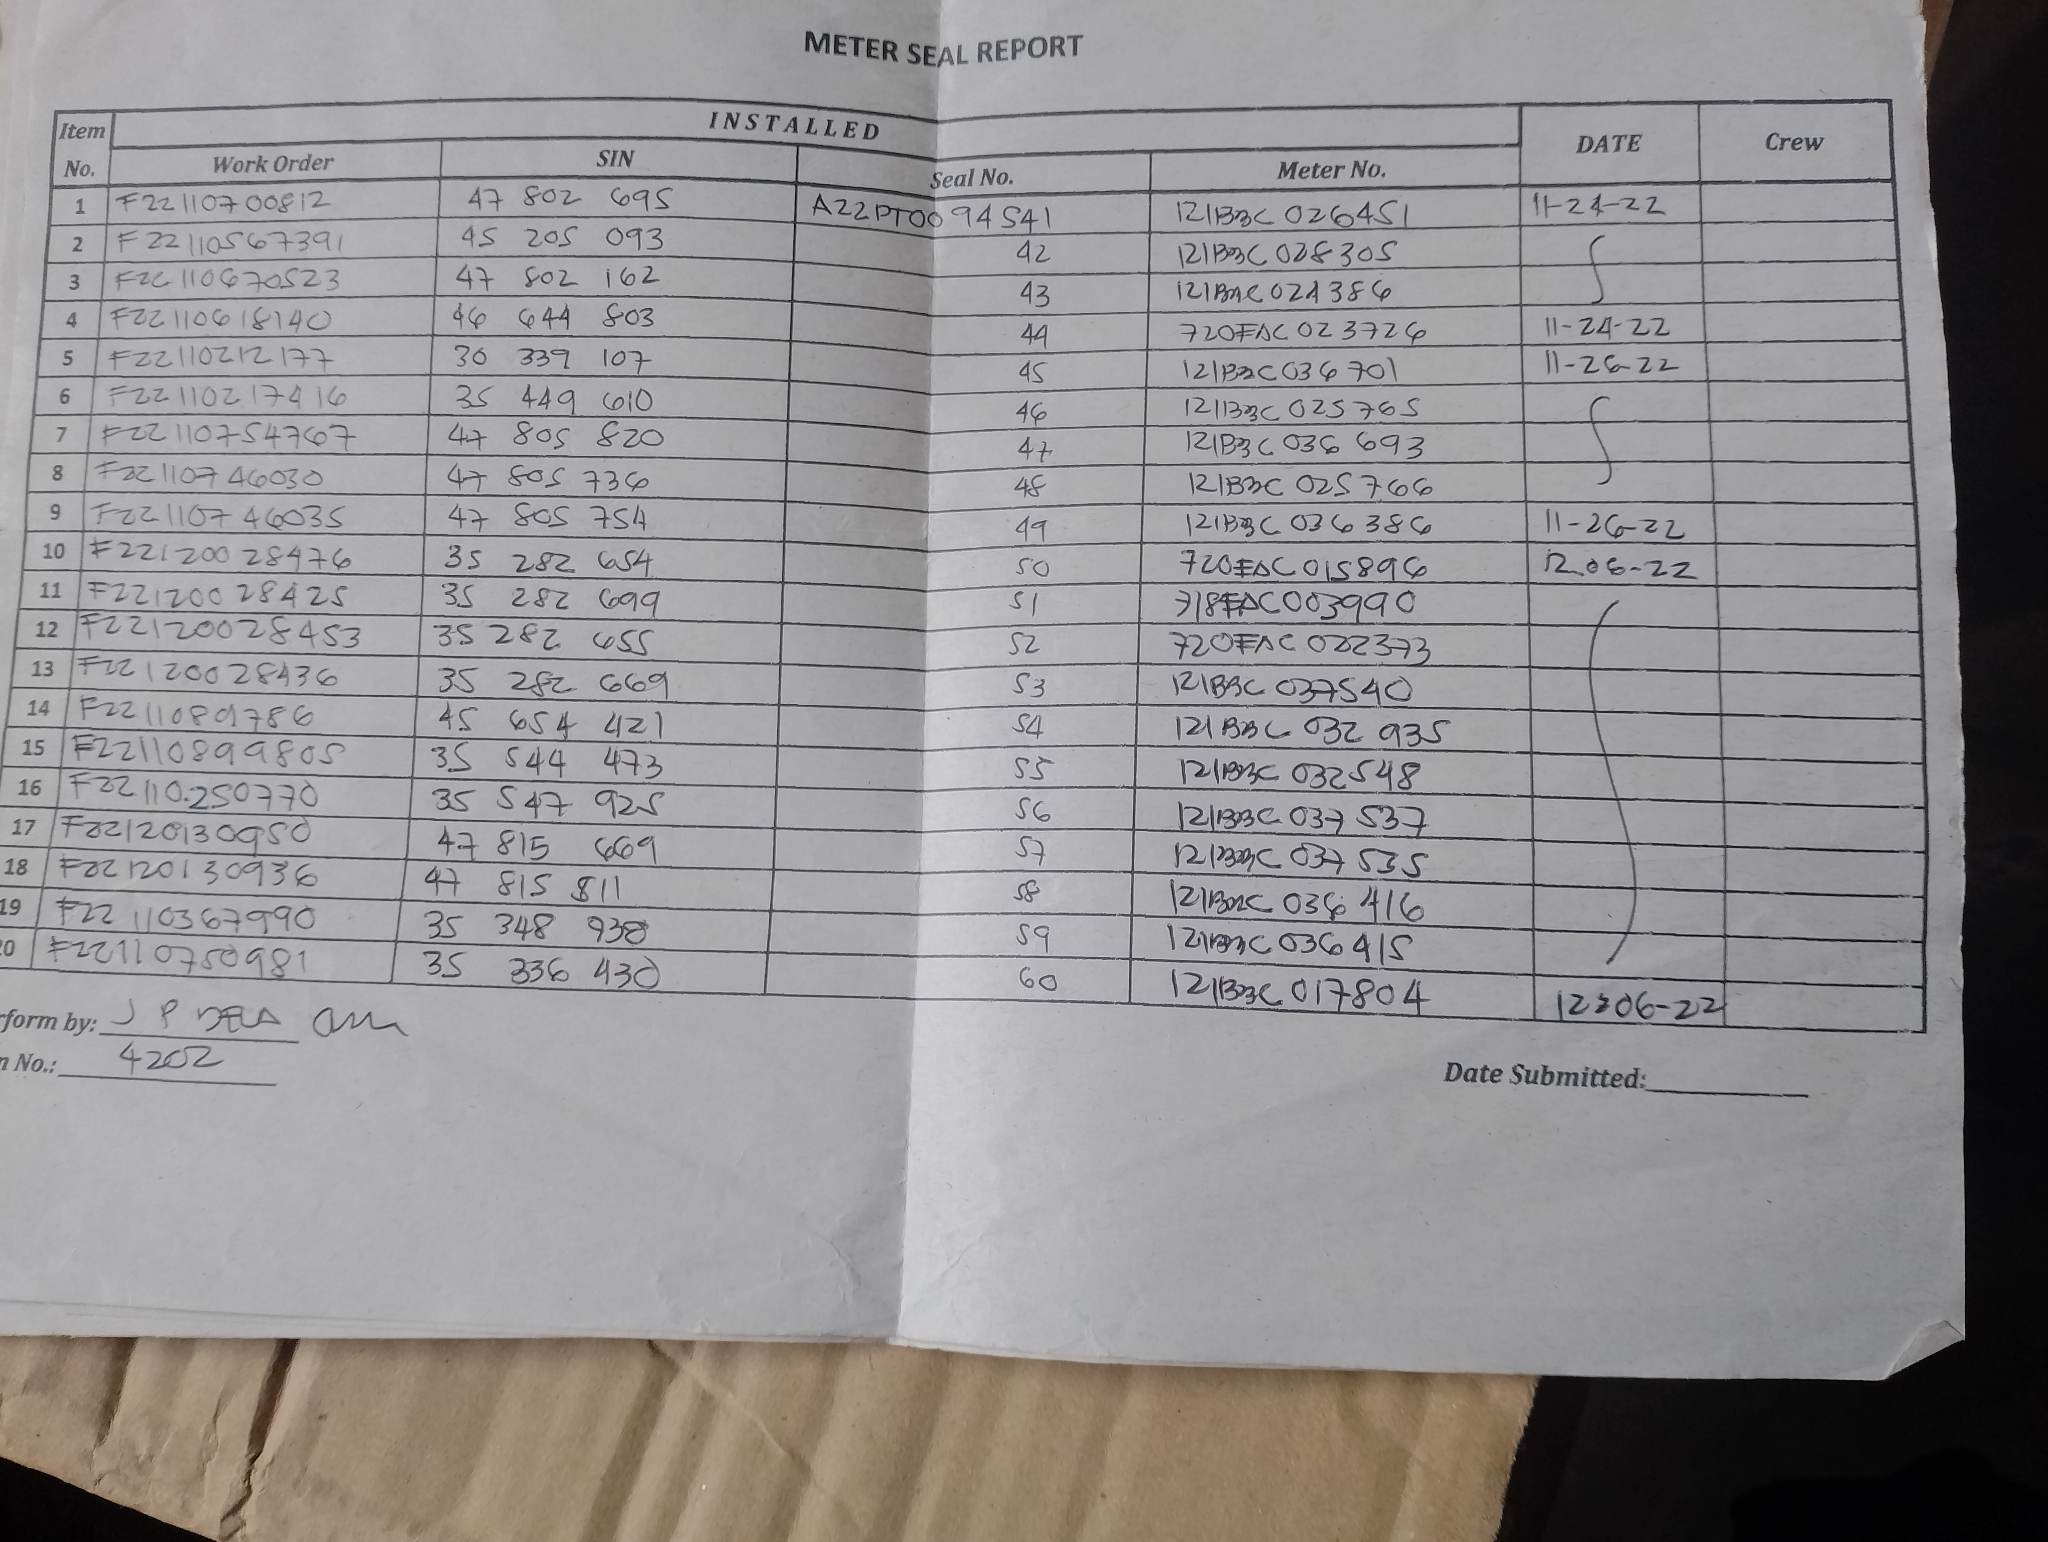 METER SEAL REPORT
Item No. INSTALLED DATE Crew
Work Order SIN Seal No. Meter No.
1 F22110700812 47 802 695 A22PT0094541 121B3C026451 11-24-22
2 F22110567391 45 205 093 42 121B3C028305
3 F22110670523 47 802 162 43 121B3C024386
4 F22110618140 46 644 803 44 720FAC023726 11-24-22
5 F22110212177 30 339 107 45 121B3C036701 11-26-22
6 F22110217416 35 449 610 46 121B3C025765
7 F22110754767 47 805 820 47 121B3C036693
8 F22110746030 47 805 736 48 121B3C025766
9 F22110746035 47 805 754 49 121B3C036386 11-26-22
10 F22120028476 35 282 654 50 720FAC015896 12.06-22
11 F22120028425 35 282 699 51 718FAC003990
12 F22120028453 35 282 655 52 720FAC022373
13 F22120028436 35 282 669 53 121B3C037540
14 F2211089786 45 654 421 54 121B3C032935
15 F22110899805 35 544 473 55 121B3C032548
16 F22110250770 35 547 925 56 121B3C037537
17 F22120130950 47 815 669 57 121B3C037535
18 F22120130936 47 815 811 58 121B3C036416
19 F22110367990 35 348 938 59 121B3C036415
20 F22110750981 35 336 430 60 121B3C017804 12-06-22
form by: J P
No.: 4202
Date Submitted: